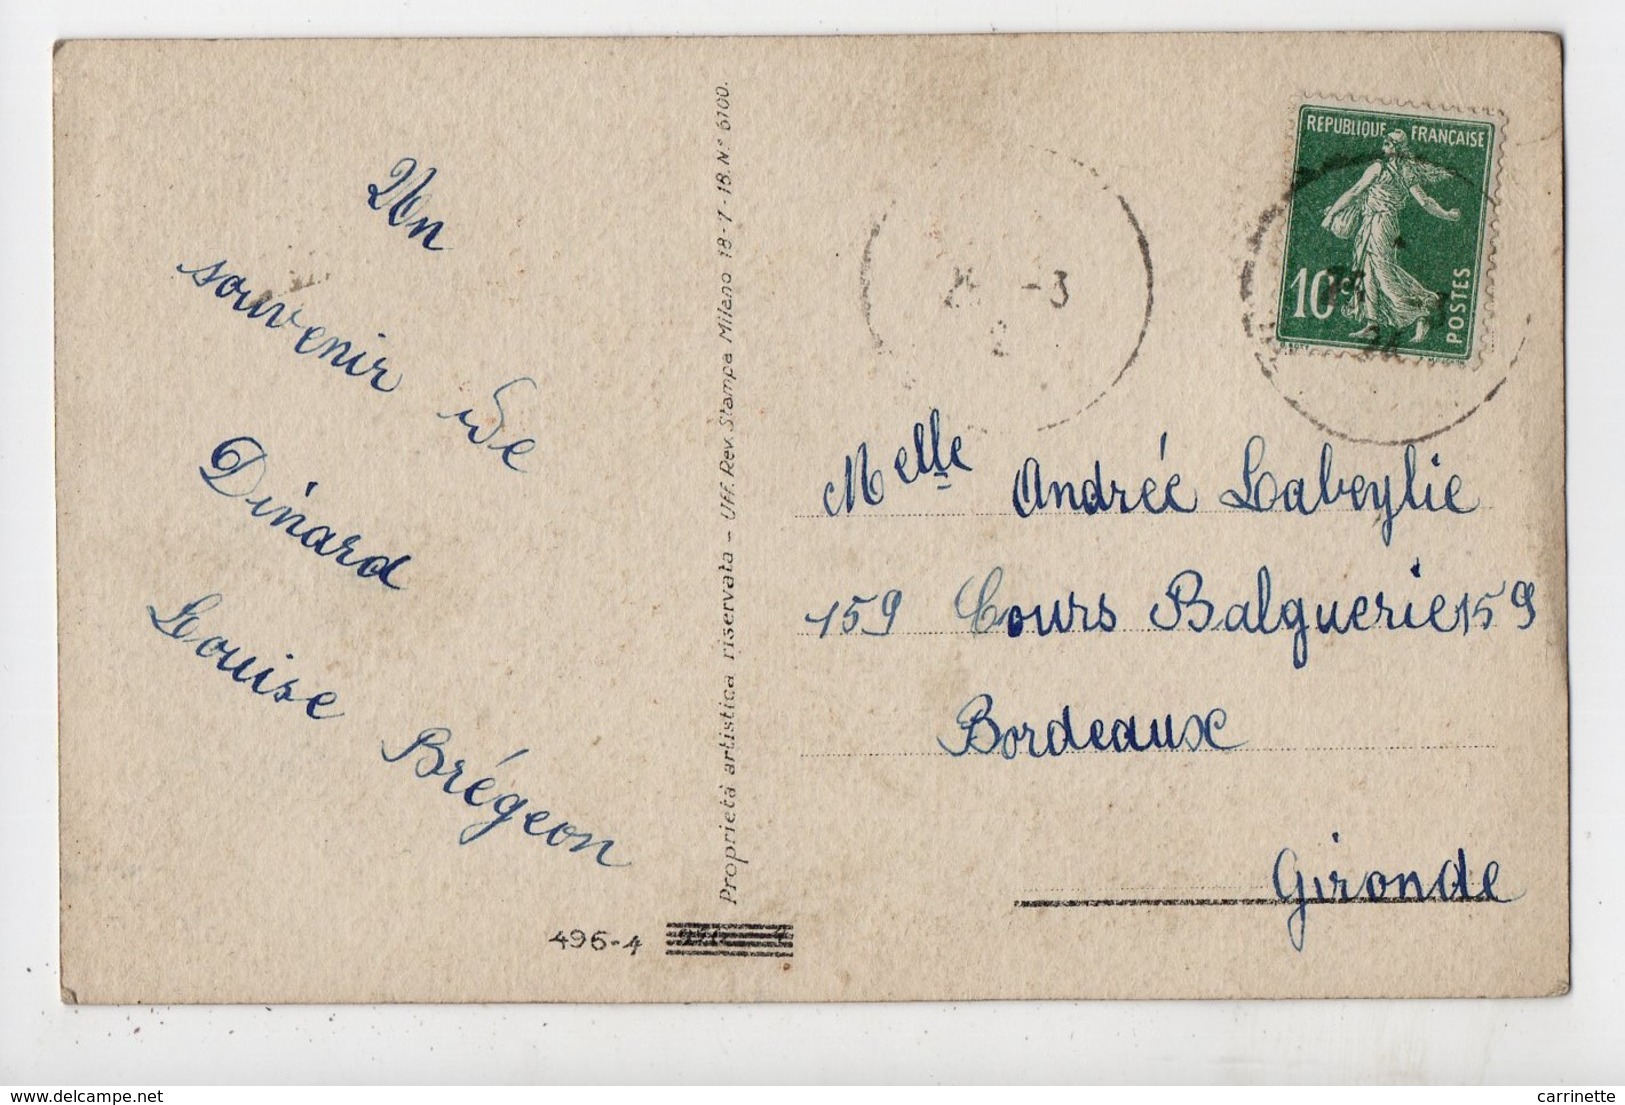 Un
souvenir de
Dinard
Louise Brégeon
496-4
Proprietà artistica riservata - Uff. Rev. Stampa Milano 18-7-18. N° 6100.
REPUBLIQUE FRANÇAISE
10c
POSTES
-3
Melle Andrée Labeylie
159 Cours Balguerie 159
Bordeaux
Gironde
delcampe.net
carrinette